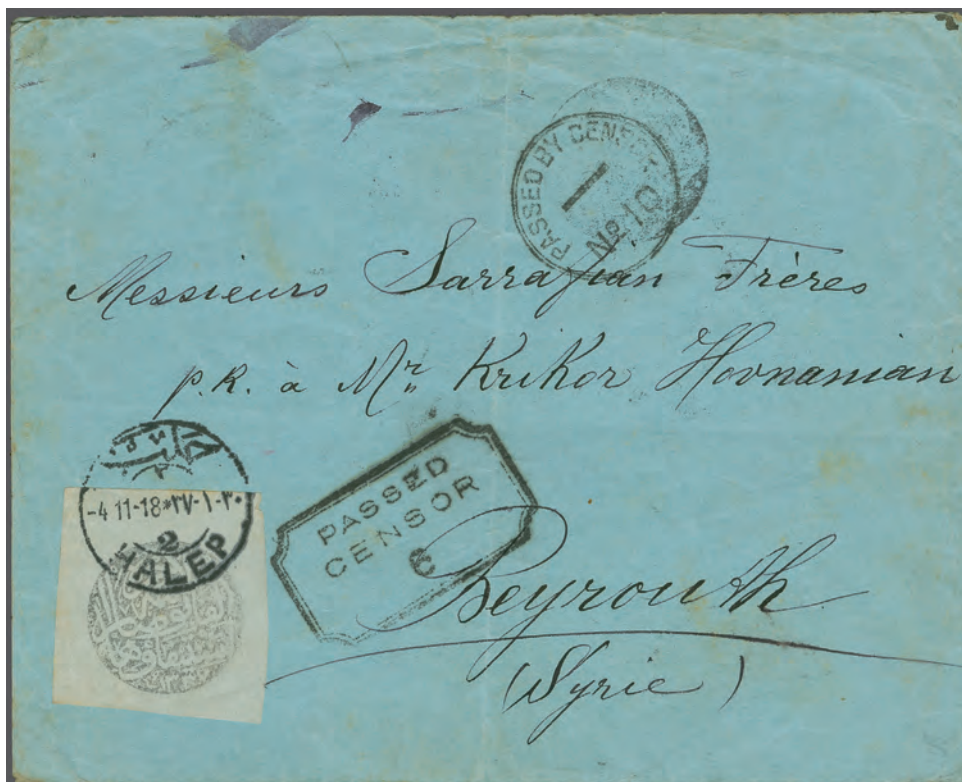 PASSED BY CENSOR
No 10
Messieurs Sarrafian Frères
p.R. à Mr. Krikor Hovnanian
-4 11-18 * ٣٧-١-٣٠
2
HALEP
PASSED
CENSOR
6
Beyrouth
(Syrie)